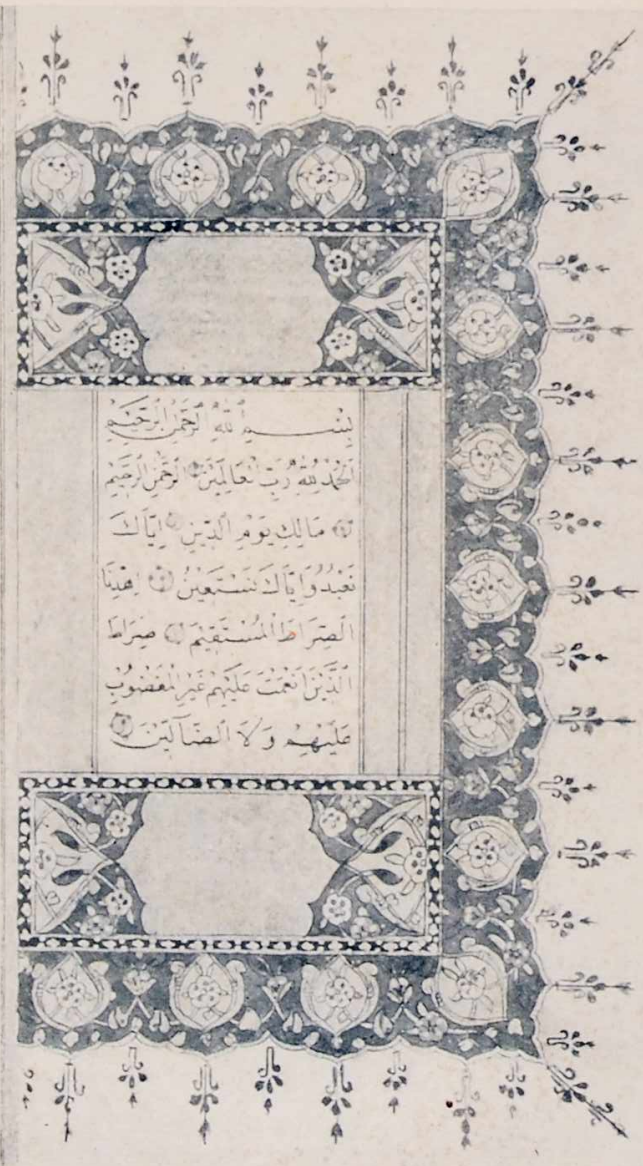 بِسْمِ اللَّهِ الرَّحْمَنِ الرَّحِيمِ
الْحَمْدُ لِلَّهِ رَبِّ الْعَالَمِينَ الرَّحْمَنِ الرَّحِيمِ
مَالِكِ يَوْمِ الدِّينِ إِيَّاكَ
نَعْبُدُ وَإِيَّاكَ نَسْتَعِينُ اِهْدِنَا
الصِّرَاطَ الْمُسْتَقِيمَ صِرَاطَ
الَّذِينَ أَنْعَمْتَ عَلَيْهِمْ غَيْرِ الْمَغْضُوبِ
عَلَيْهِمْ وَلَا الضَّآلِّينَ